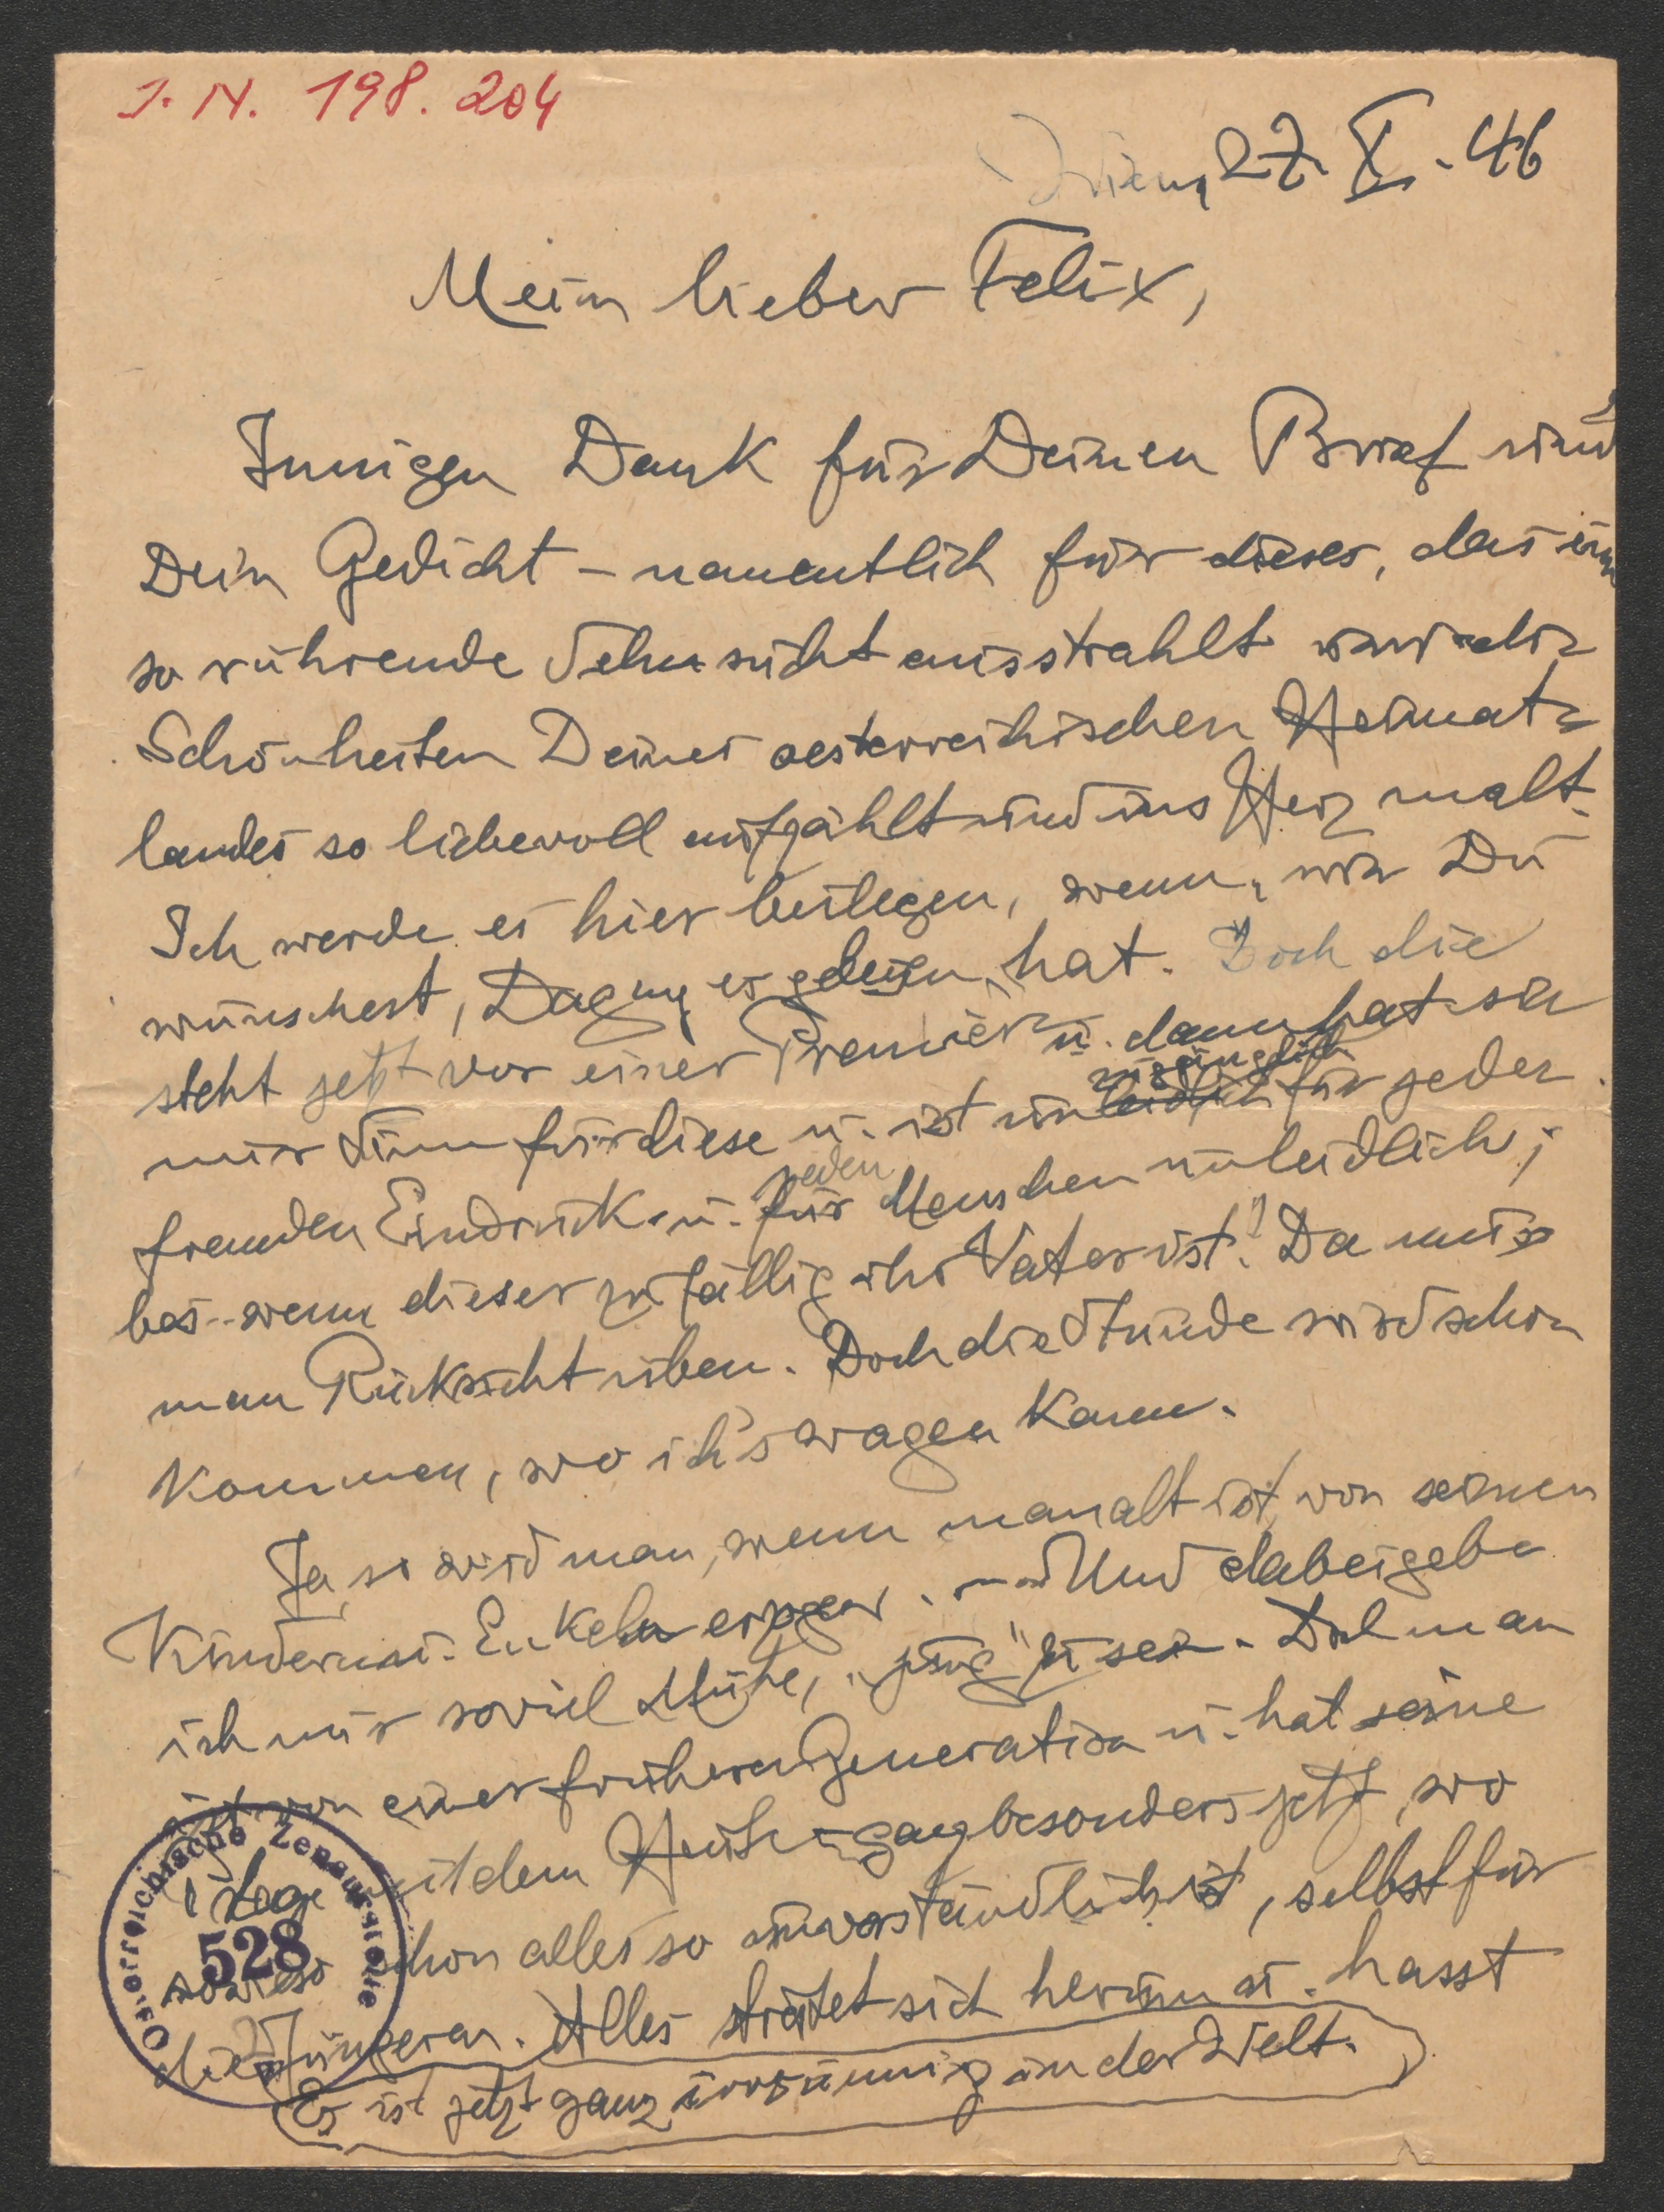 J. N. 198.204
Wien, 27. X. 46
Mein lieber Felix,
Innigen Dank für Deinen Brief und
Dein Gedicht – namentlich für dieses, das eine
so rührende Sehnsucht ausstrahlt und die
Schönheiten Deines oesterreichischen Heimat=
landes so liebevoll aufzählt und ins Herz malt.
Ich werde es hier beilegen, wenn, wie Du
wünschest, Dagny es gelesen hat. Doch die
steht jetzt vor einer „Premiere“ u. dann hat sie
nur Sinn für diese u. ist unzugänglich für jeden
fremden Eindruck u. für jeden Menschen unleidlich;
bes. wenn dieser zufällig ihr Vater ist! Da muss
man Rücksicht üben. Doch die Stunde wird schon
kommen, wo ich's wagen kann.
Ja, so wird man, wenn man alt ist, von seinen
Kindern u. Enkeln erzogen. – Und dabei gebe
ich mir soviel Mühe, „jung“ zu sein. Doch man
ist von einer früheren Generation u. hat seine
Plage mit dem Heute – ganz besonders jetzt, wo
sowieso schon alles so unverständlich ist, selbst für
die Jüngeren. Alles streitet sich herum u. hasst
Es ist jetzt ganz irrsinnig in der Welt.
Österreichische Zensurstelle
528